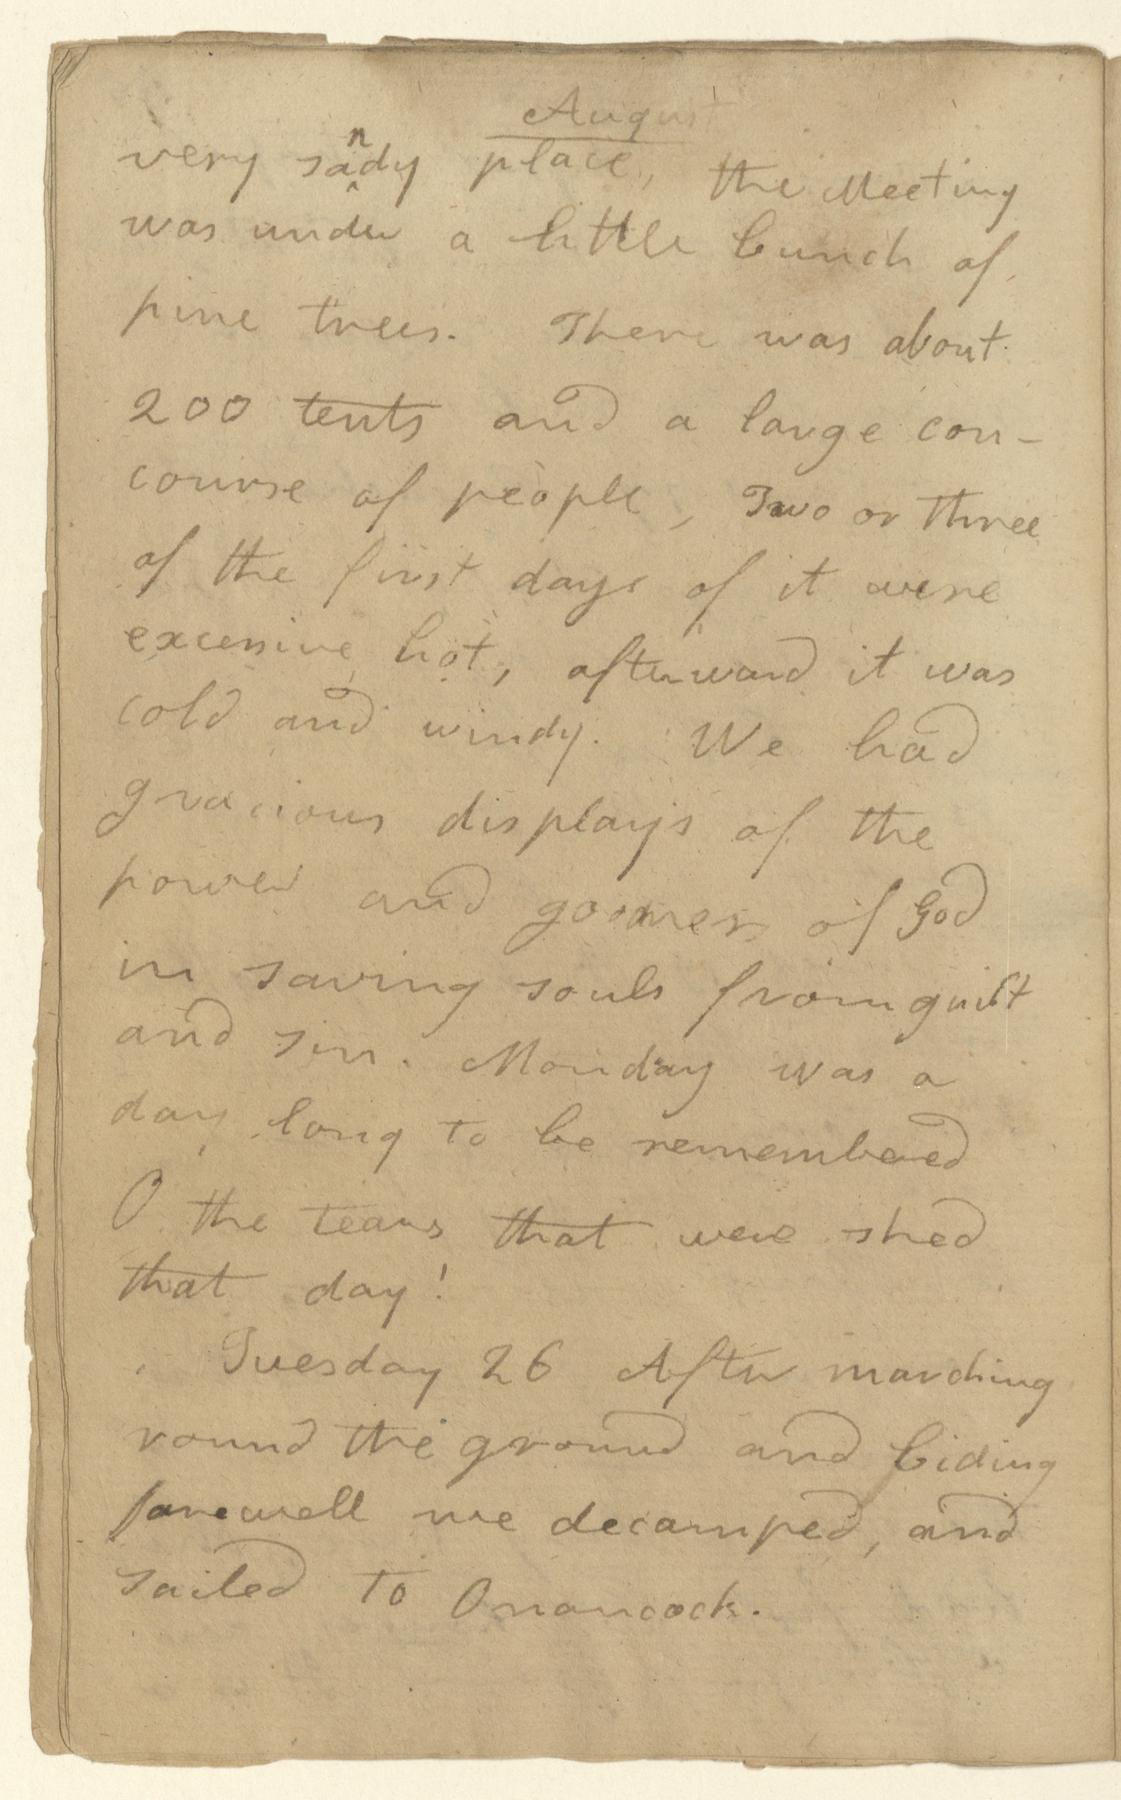 August
very sandy place, the Meeting
was under a little bunch of
pine trees. There was about
200 tents and a large con-
course of people, Two or three
of the first days of it were
excessive hot, afterward it was
cold and windy. We had
gracious displays of the
power and goodness of God
in saving souls from guilt
and sin. Monday was a
day long to be remembered
O the tears that were shed
that day!
Tuesday 26 After marching
round the ground and biding
farewell we decamped, and
sailed to Onancock.